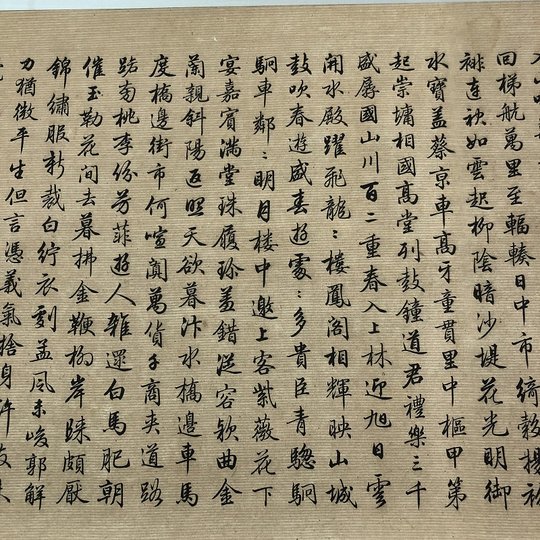 回梯航萬里至輻輳日中市綺縠揚
連袂如雲起柳陰暗沙堤花光明御
水寶蓋蔡京車高牙童貫里中樞甲第
起崇墉相國高堂列鼓鐘道君禮樂三千
盛孱國山川百二重春入上林迎旭日雲
開水殿躍飛龍〻樓鳳閣相輝映山城
鼓吹春遊盛春遊處〻多貴臣青驄駉
駉車鄰〻明月樓中邀上客紫薇花下
宴嘉賓滿堂珠履珍蓋錯從容歌曲金
蘭親斜陽返照天欲暮汴水橋邊車馬
度橋邊街市何喧闐萬貨千商夾道路
踣南桃李份芳菲遊人雜遝白馬肥朝
催玉勒花間去暮拂金鞭柳岸踩頗厭
錦繡服新裁白紵衣劇孟風未峻郭解
力猶微平生但言憑義氣捨身許友